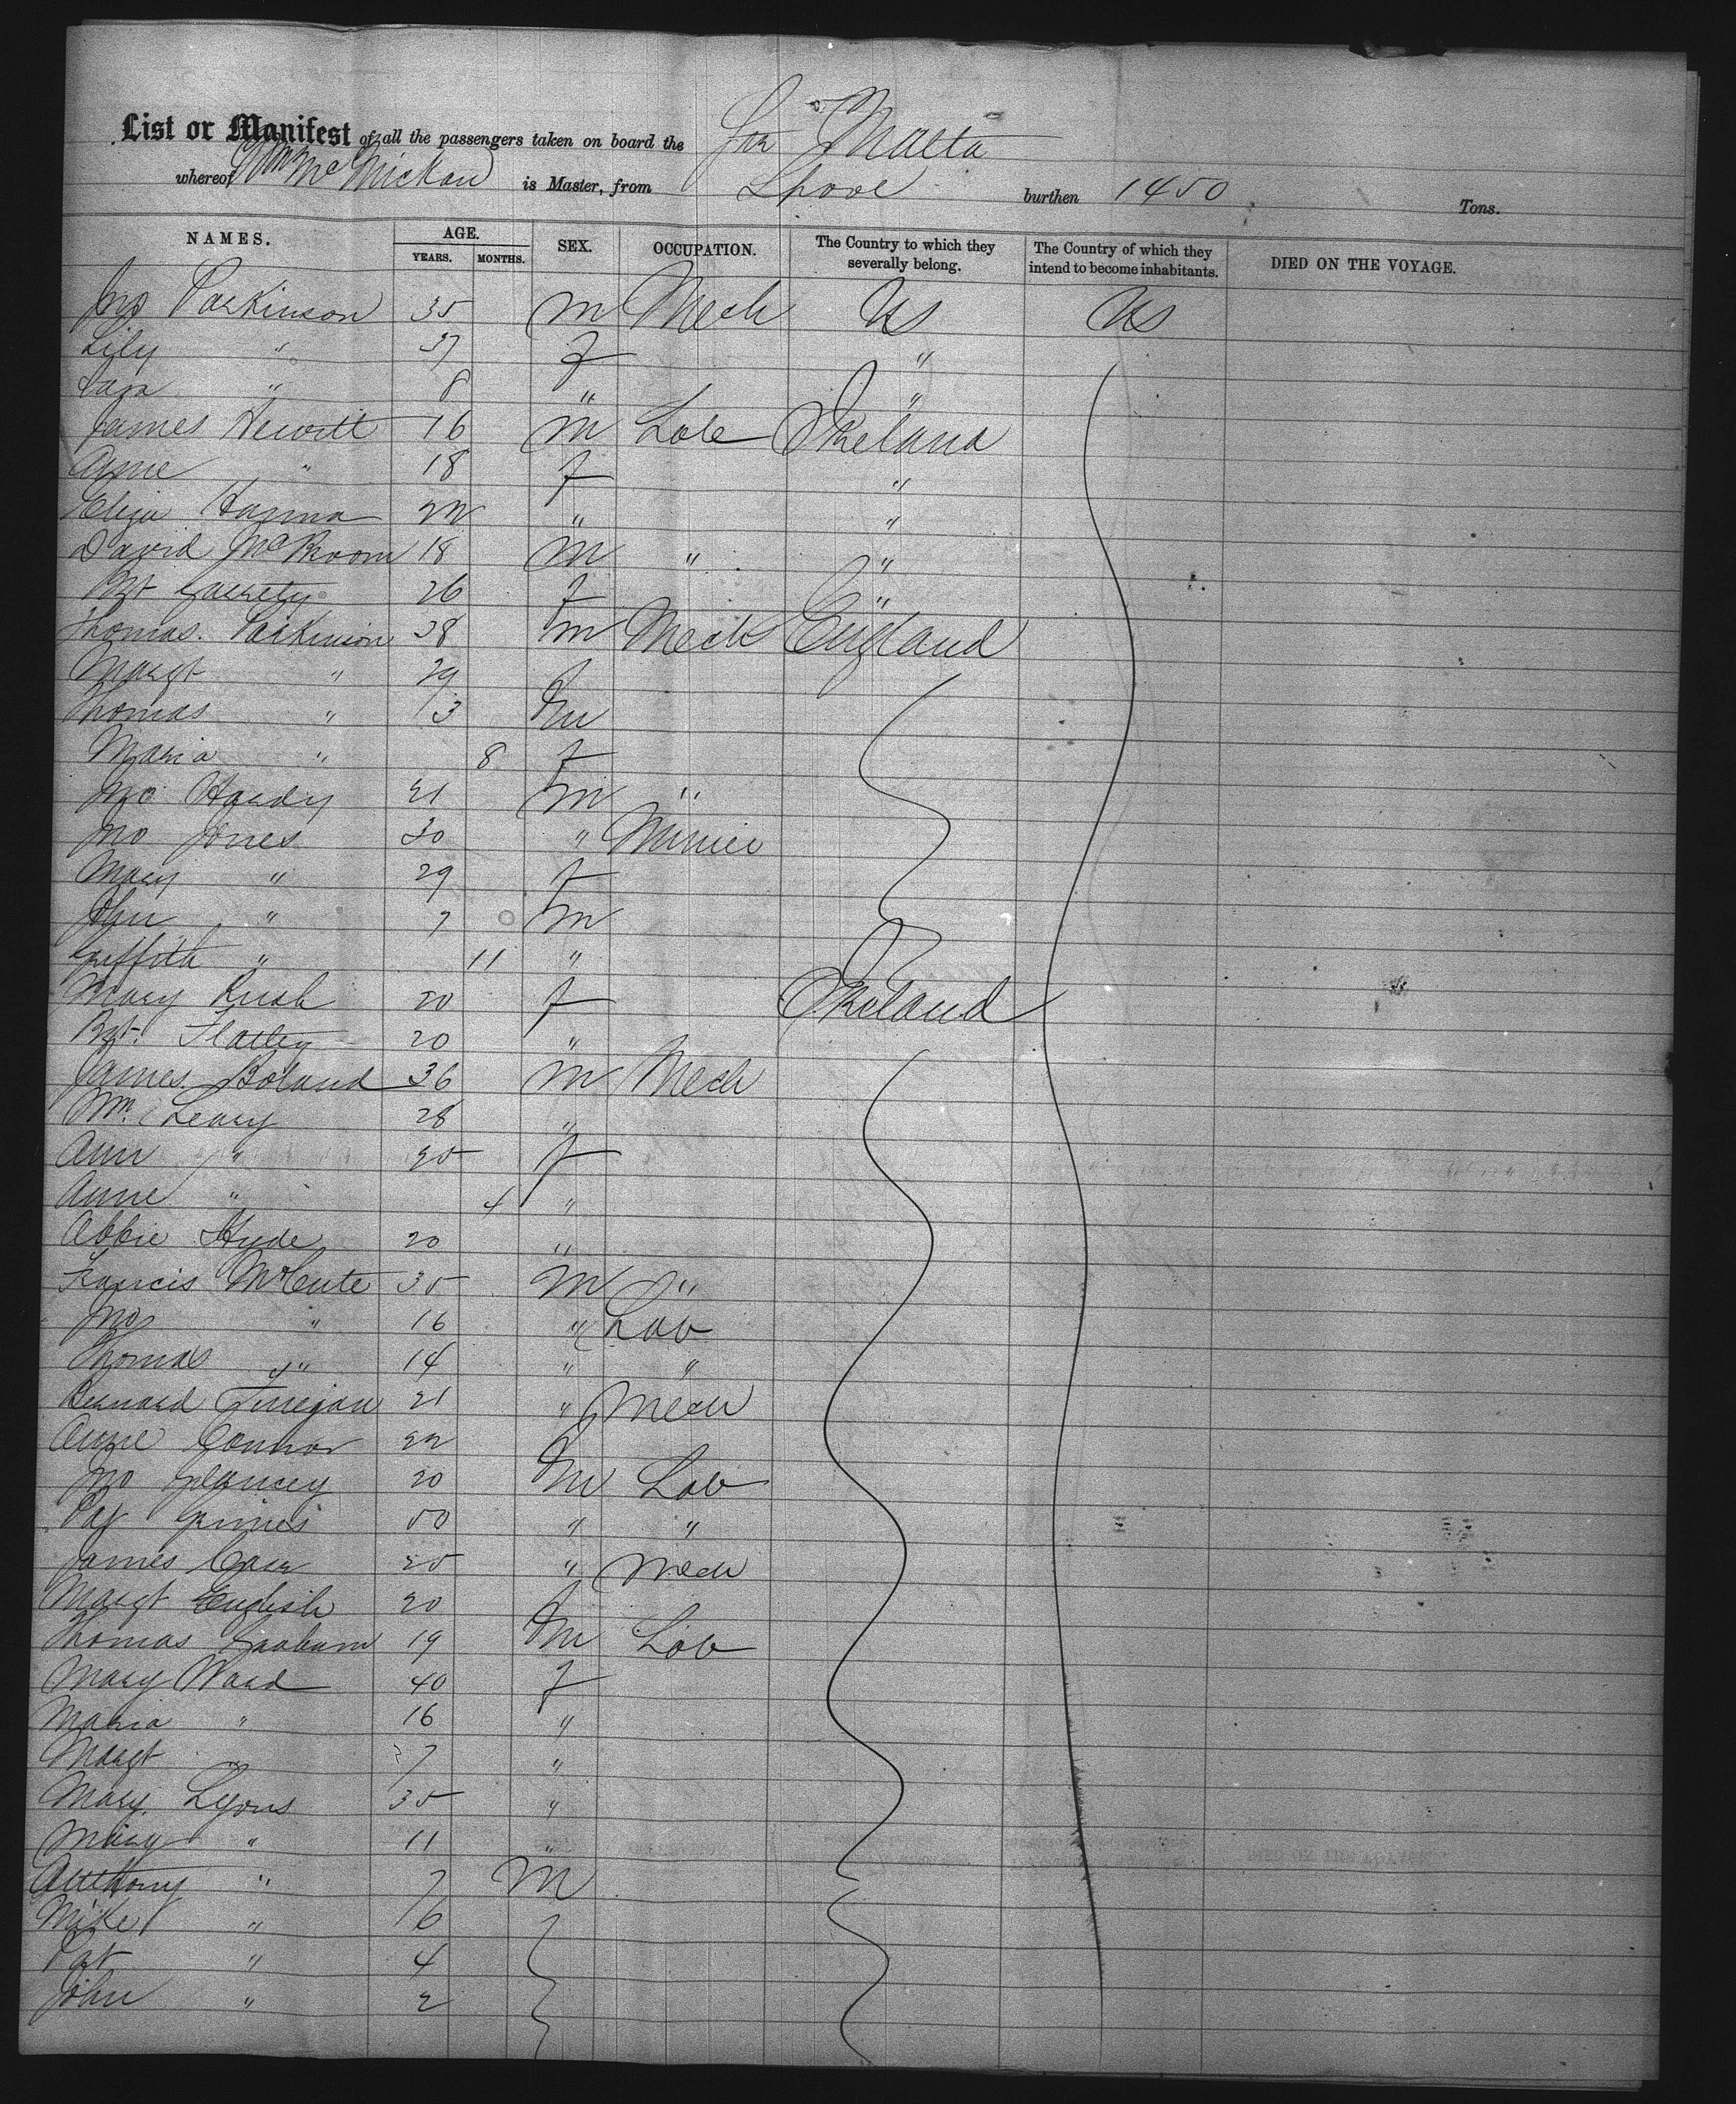 List or Manifest of all the passengers taken on board the Str Malta
whereof Wm McMickan is Master, from Lpool burthen 1450 Tons.
NAMES. AGE. YEARS. MONTHS. SEX. OCCUPATION. The Country to which they severally belong. The Country of which they intend to become inhabitants. DIED ON THE VOYAGE.
Jno Parkinson 35 m Mech US US
Lily " 37 f "
" 8 " "
James Hewitt 16 m Lab Ireland
Anne " 18 f "
Eliza Hanna 22 " "
David McKroom 18 m " "
Bgt 26 f "
Thomas Parkinson 38 m Mech England
Margt " 29
Thomas " 13 m
Maria " 8 f
Jno Hardy 21 m "
Jno Jones 30 " Miner
Mary " 29 f
John " 7 m
Griffith " 11 "
Mary Rush 20 f Ireland
Bgt Flatley 20 "
James Boland 36 m Mech
Wm Leary 28 "
Ann " 25 f
Anne " 4 "
Abbie Hyde 20 "
Francis 35 m "
Jno " 16 " Lab
Thomas " 14 " "
Bernard Finegan 21 " Mech
Anne Connor 22
Jno Glancey 20 m Lab
Pat Grimes 50 " "
James 25 " Mech
Margt English 20
Thomas Graham 19 m Lab
Mary Ward 40 f
Maria " 16 "
Margt " 7 "
Mary Lyons 35 "
Mary " 11 "
Antthony " 7 m
Mike " 6
Pat " 4
John " 2